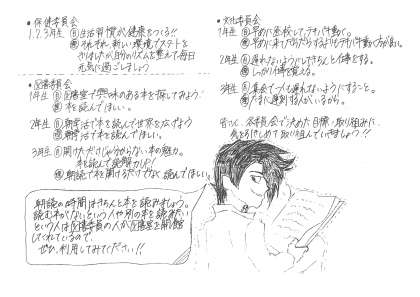 ・保健委員会
1.2.3年生 目 生活習慣が健康をつくる!!
それぞれ、新しい環境でスタートを
きりましたが自分のリズムを整えて毎日
元気に過ごしましょう
・図書委員会
1年生 目 図書室で興味のある本を探してみよう
本を読んでほしい。
2年生 目 朝学活で本を読んで世界を広げよう
朝学活で本を読んでほしい。
3年生 目 開けただけじゃ分からない本の魅力。
本を読んで読解力UP!
朝読で本を開けるだけでなく、読んでほしい。
朝読の時間はきちんと本を読みましょう。
読む本がないという人や別の本を読みたい
という人は図書委員の人が図書室を開館
してくれているので、
ぜひ、利用してみてください!!
・文化委員会
1年生 目 早めに登校して、テキパキ動く。
早めに来てだらだらするよりもテキパキ動く方が良い。
2年生 目 遅れないようにしてきちんと仕事をする。
しっかり仕事を覚える。
3年生 目 集会でつも遅れないようにすること。
たまに遅刻する人がいるから。
皆さん、各委員会で決めた目標、取り組みに、
気を引きしめて取り組んでいきましょう!!